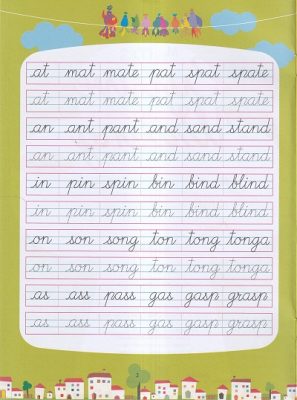 at mat mate pat spat spate
at mat mate pat spat spate
an ant pant and sand stand
an ant pant and sand stand
in pin spin bin bind blind
in pin spin bin bind blind
on son song ton tong tonga
on son song ton tong tonga
as ass pass gas gasp grasp
as ass pass gas gasp grasp
3